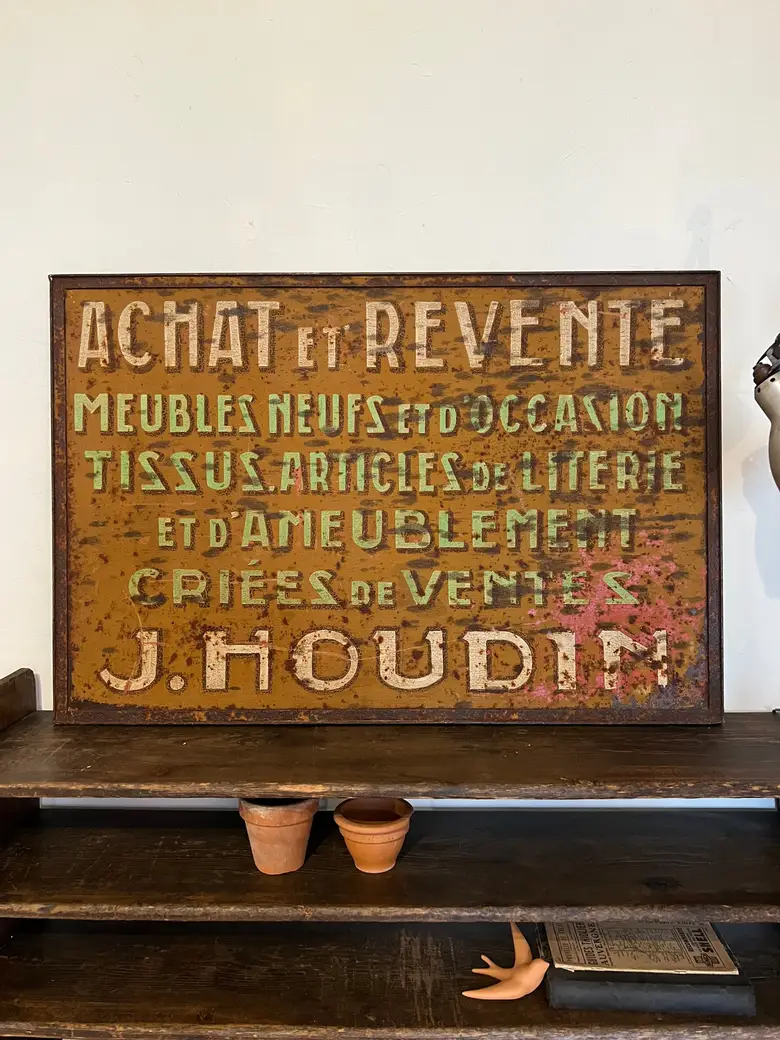 ACHAT ET REVENTE
MEUBLES NEUFS ET D'OCCASION
TISSUS. ARTICLES DE LITERIE
ET D'AMEUBLEMENT
CRIÉES DE VENTES
J. HOUDIN
AUVERGNE
SHELL